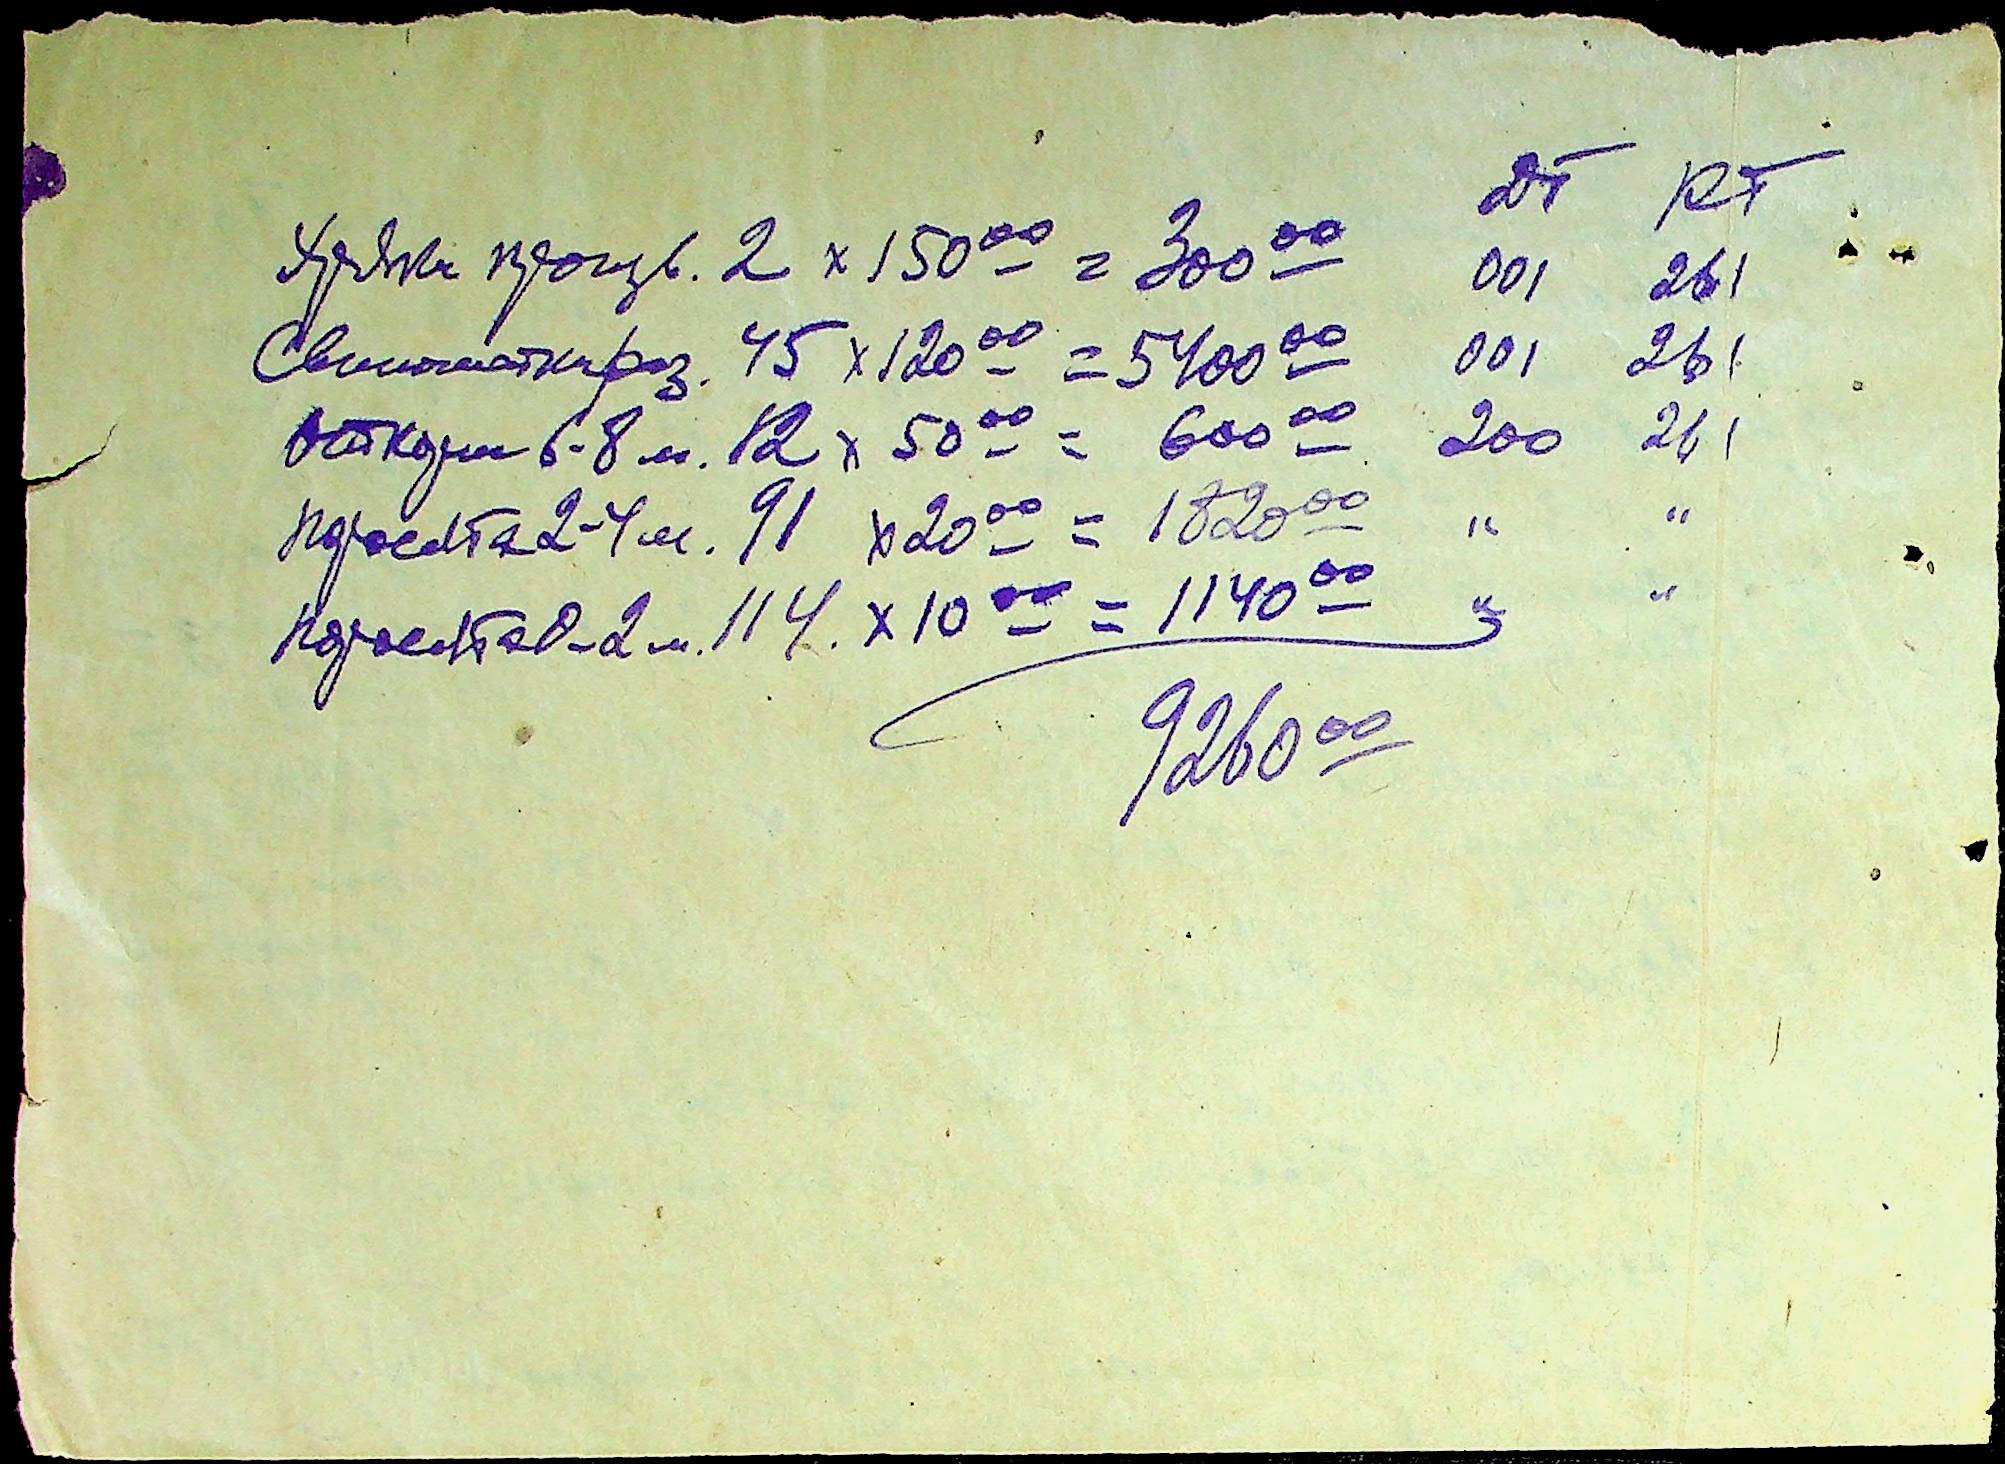 Дт Кт
Хряки произв. 2 x 150 00 = 300 00 001 261
Свиноматки раз. 45 x 120 00 = 5400 00 001 261
Откорм 6-8 м. 12 x 50 00 = 600 00 200 261
Поросята 2-4 м. 91 x 20 00 = 1820 00 " "
Поросята 0-2 м. 114. x 10 00 = 1140 00 " "
9260 00